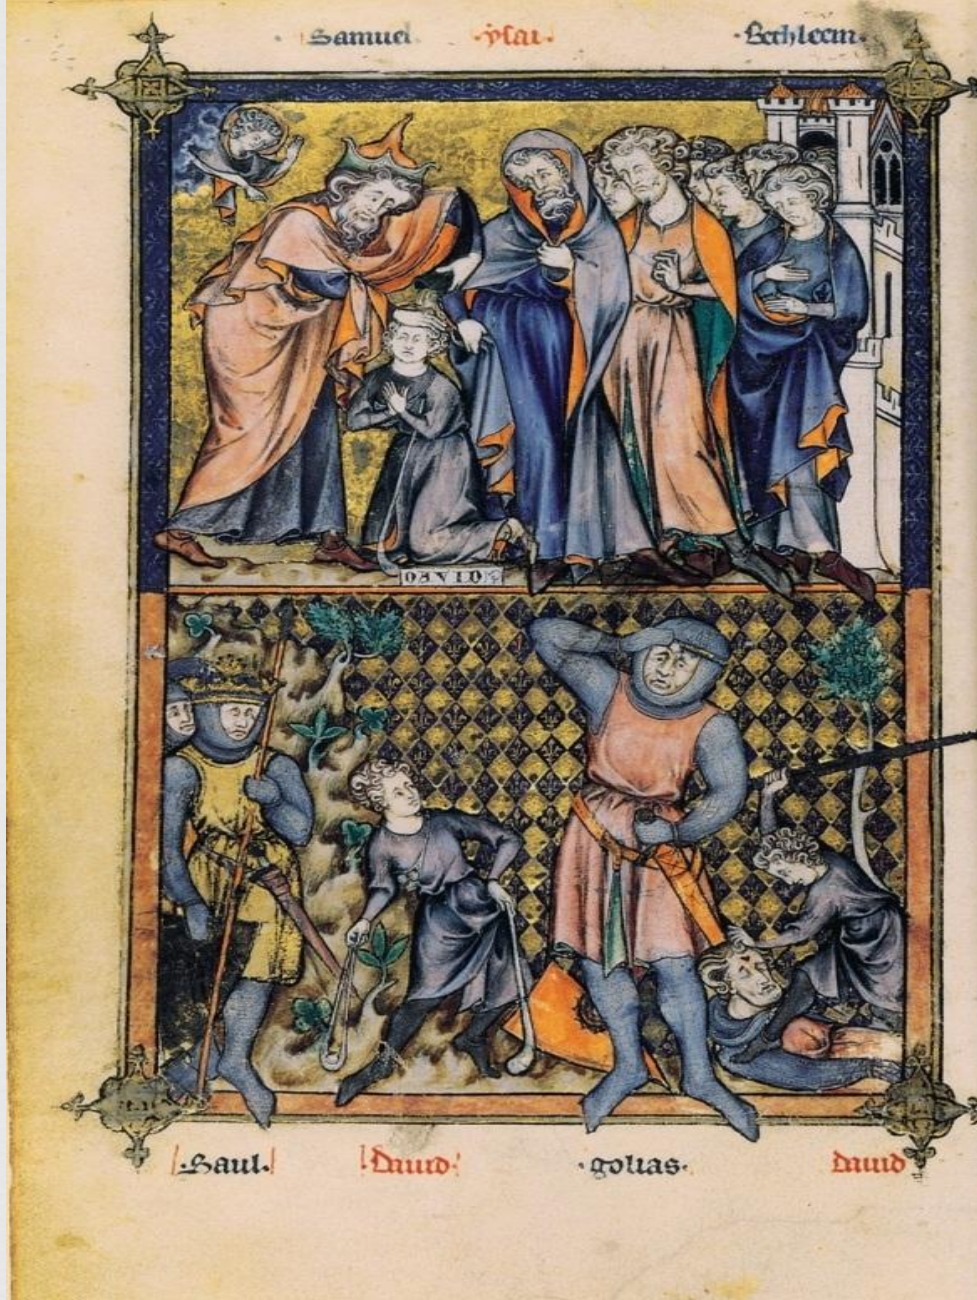 · Samuel · ysai · · Bethleem ·
DAVID
· Saul · David · · golias · david